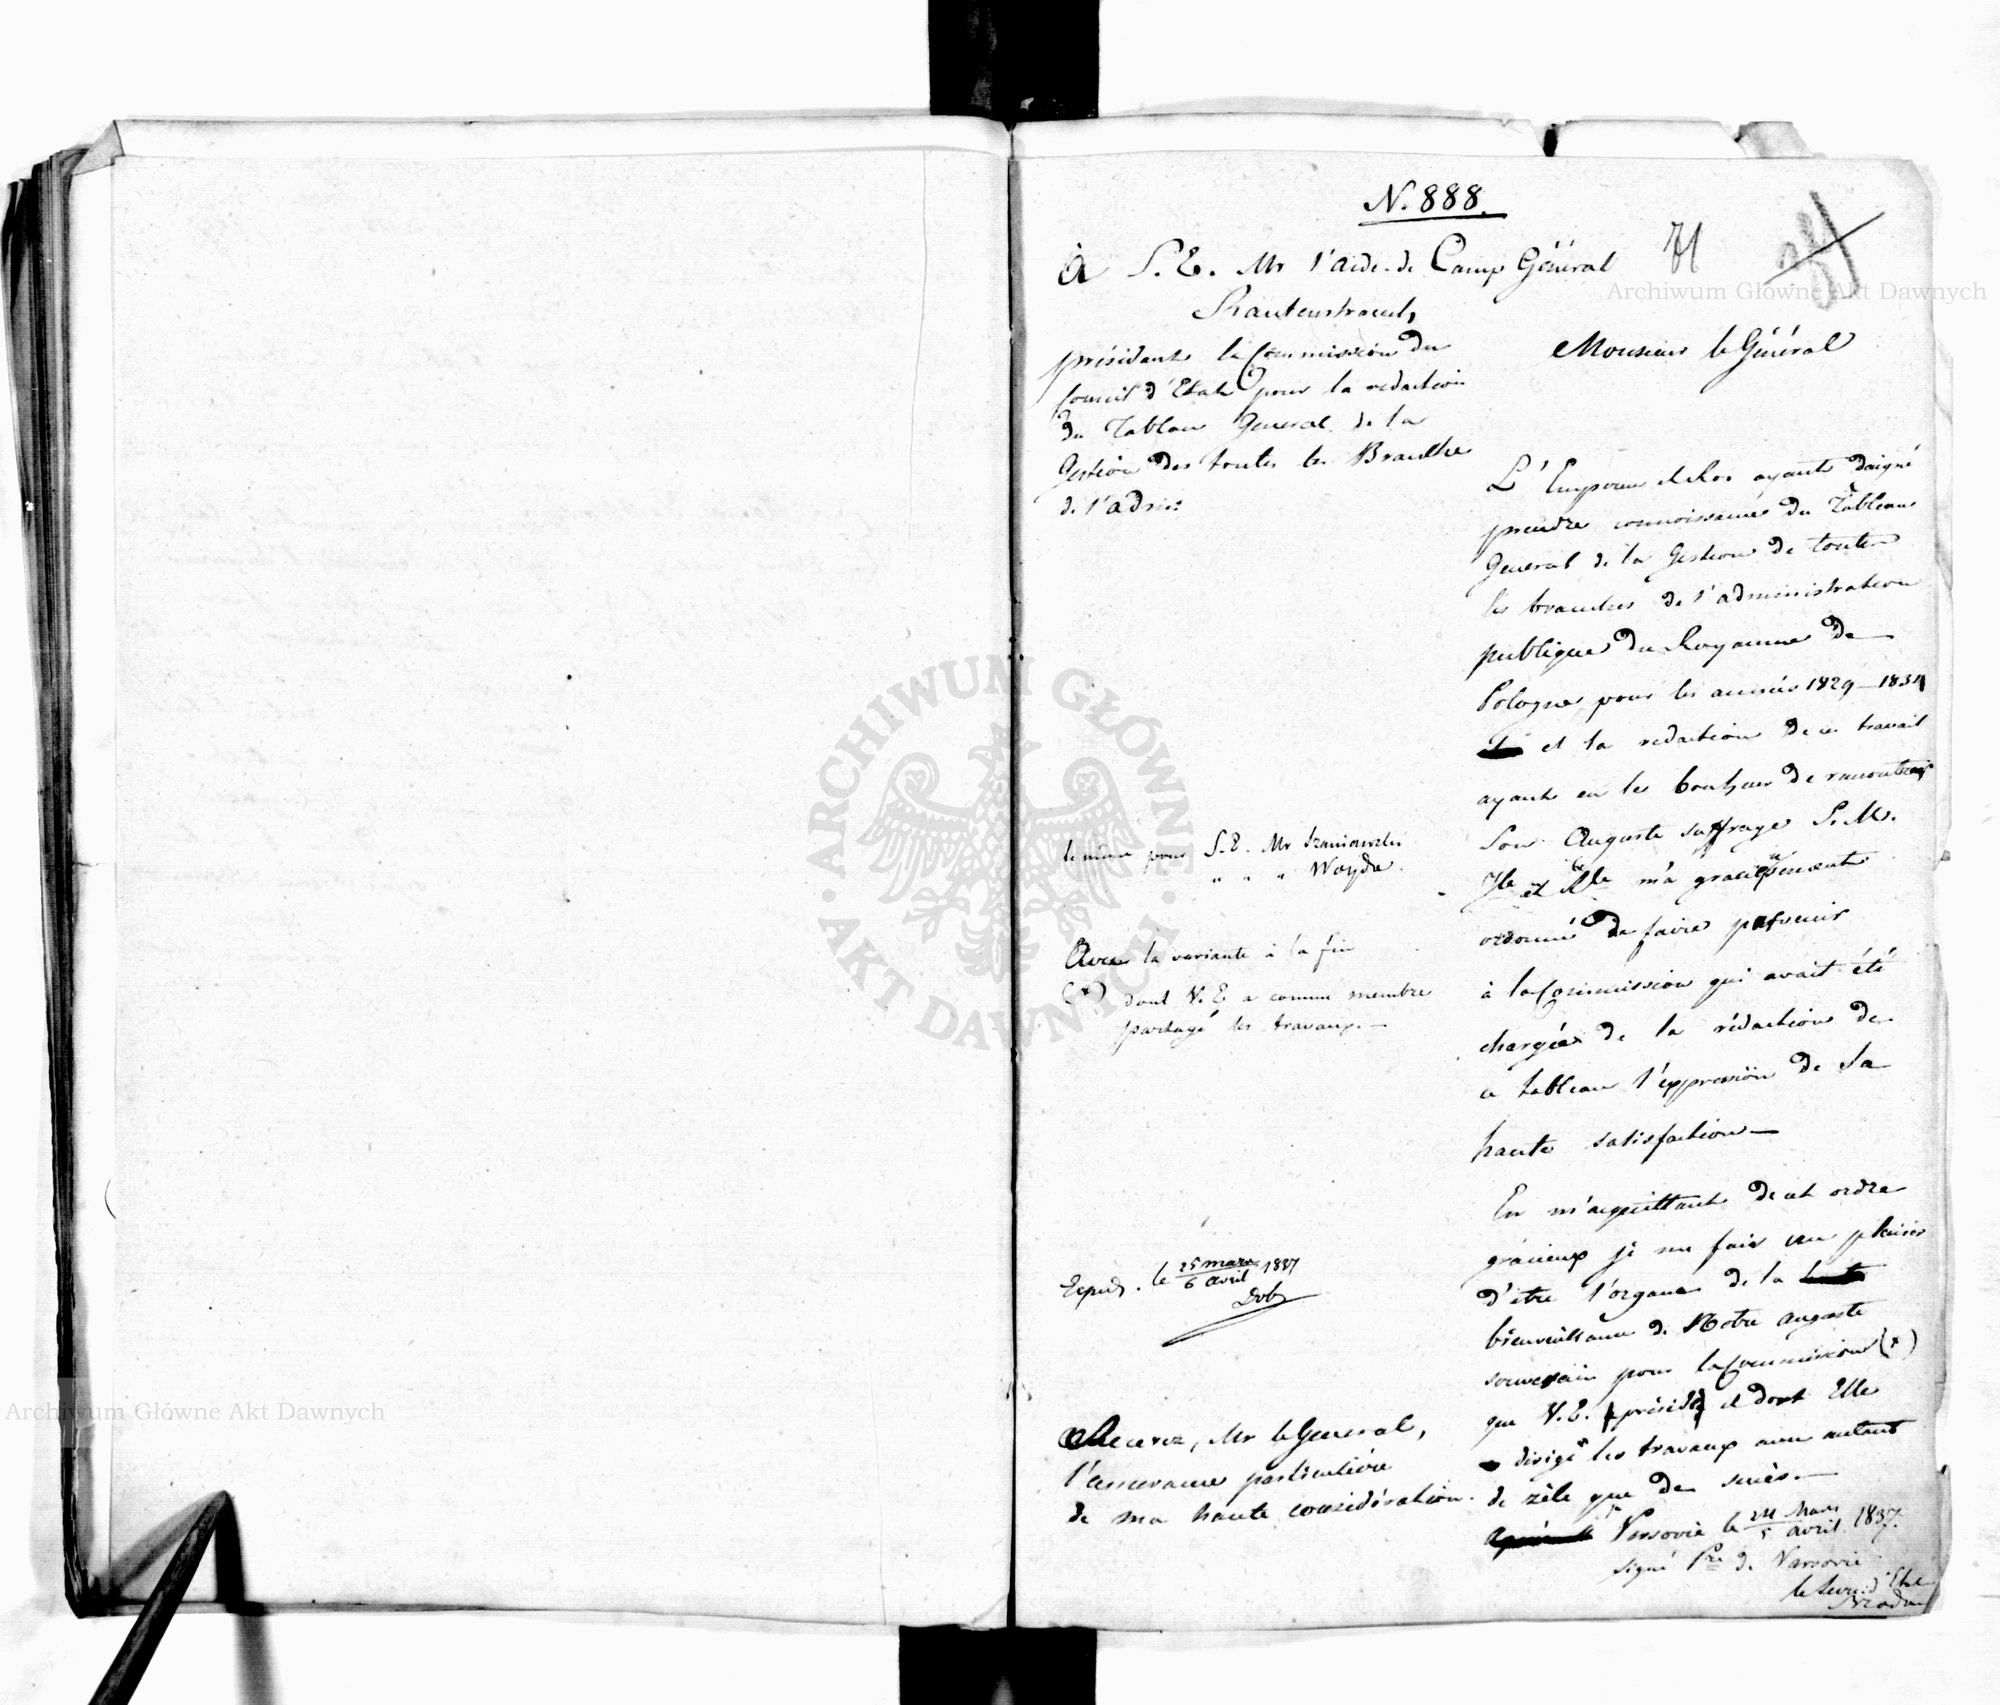 N. 888.
71
À S. E. Mr l'aide-de Camp Général
Rautenstrauch,
présidant la Commission du
Conseil d'Etat pour la redaction
du Tableau General de la
Gestion des toutes les Branches
de l'adm:
Monsieur le Général
L'Empereur et Roi ayant daigné
prendre connoissance du Tableau
General de la Gestion de toutes
les branches de l'administration
publique du Royaume de
Pologne pour les années 1829–1834
et la redaction de ce travail
ayant eu le bonheur de rencontrer
Son Auguste suffrage S. M.
Ile et Rle m'a gracieusement
ordonné de faire parvenir
à la Commission qui avait été
chargée de la rédaction de
ce tableau l'expression de Sa
haute satisfaction —
En m'acquittant de cet ordre
gracieux je me fais un plaisir
d'être l'organe de la
bienveillance de Notre auguste
souverain pour la Commission (x)
que V. E. présidé et dont Elle
dirigé les travaux avec autant
de zèle que de succès. —
le même pour S. E. Mr Szaniawski
" " " Woyda.
Avec la variante à la fin
(x) dont V. E a comme membre
partagé les travaux. —
Exped. le 25 mars / 6 avril 1837
Dob
Recevez, Mr le General,
l'assurance particulière
de ma haute considération.
Varsovie le 24 Mars / 5 avril 1837.
signé Pce de Varsovie
le Secr: d'Etat
Archiwum Główne Akt Dawnych
Archiwum Główne Akt Dawnych
ARCHIWUM GŁÓWNE AKT DAWNYCH